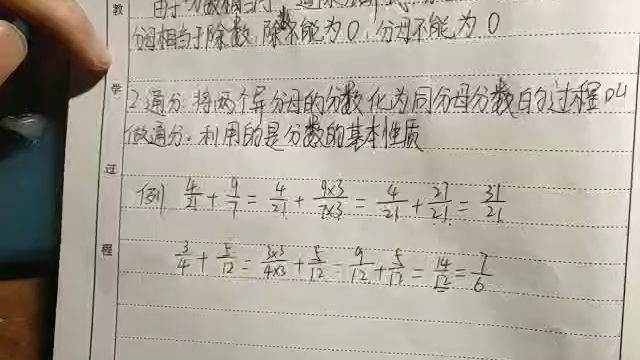 分母相当于除数,除数不能为0,分母不能为0
教
学
过
程
2 通分:将两个异分母的分数化为同分母分数的过程叫
做通分。利用的是分数的基本性质
例 4/21 + 9/7 = 4/21 + 9×3/7×3 = 4/21 + 27/21 = 31/21
3/4 + 5/12 = 3×3/4×3 + 5/12 = 9/12 + 5/12 = 14/12 = 7/6